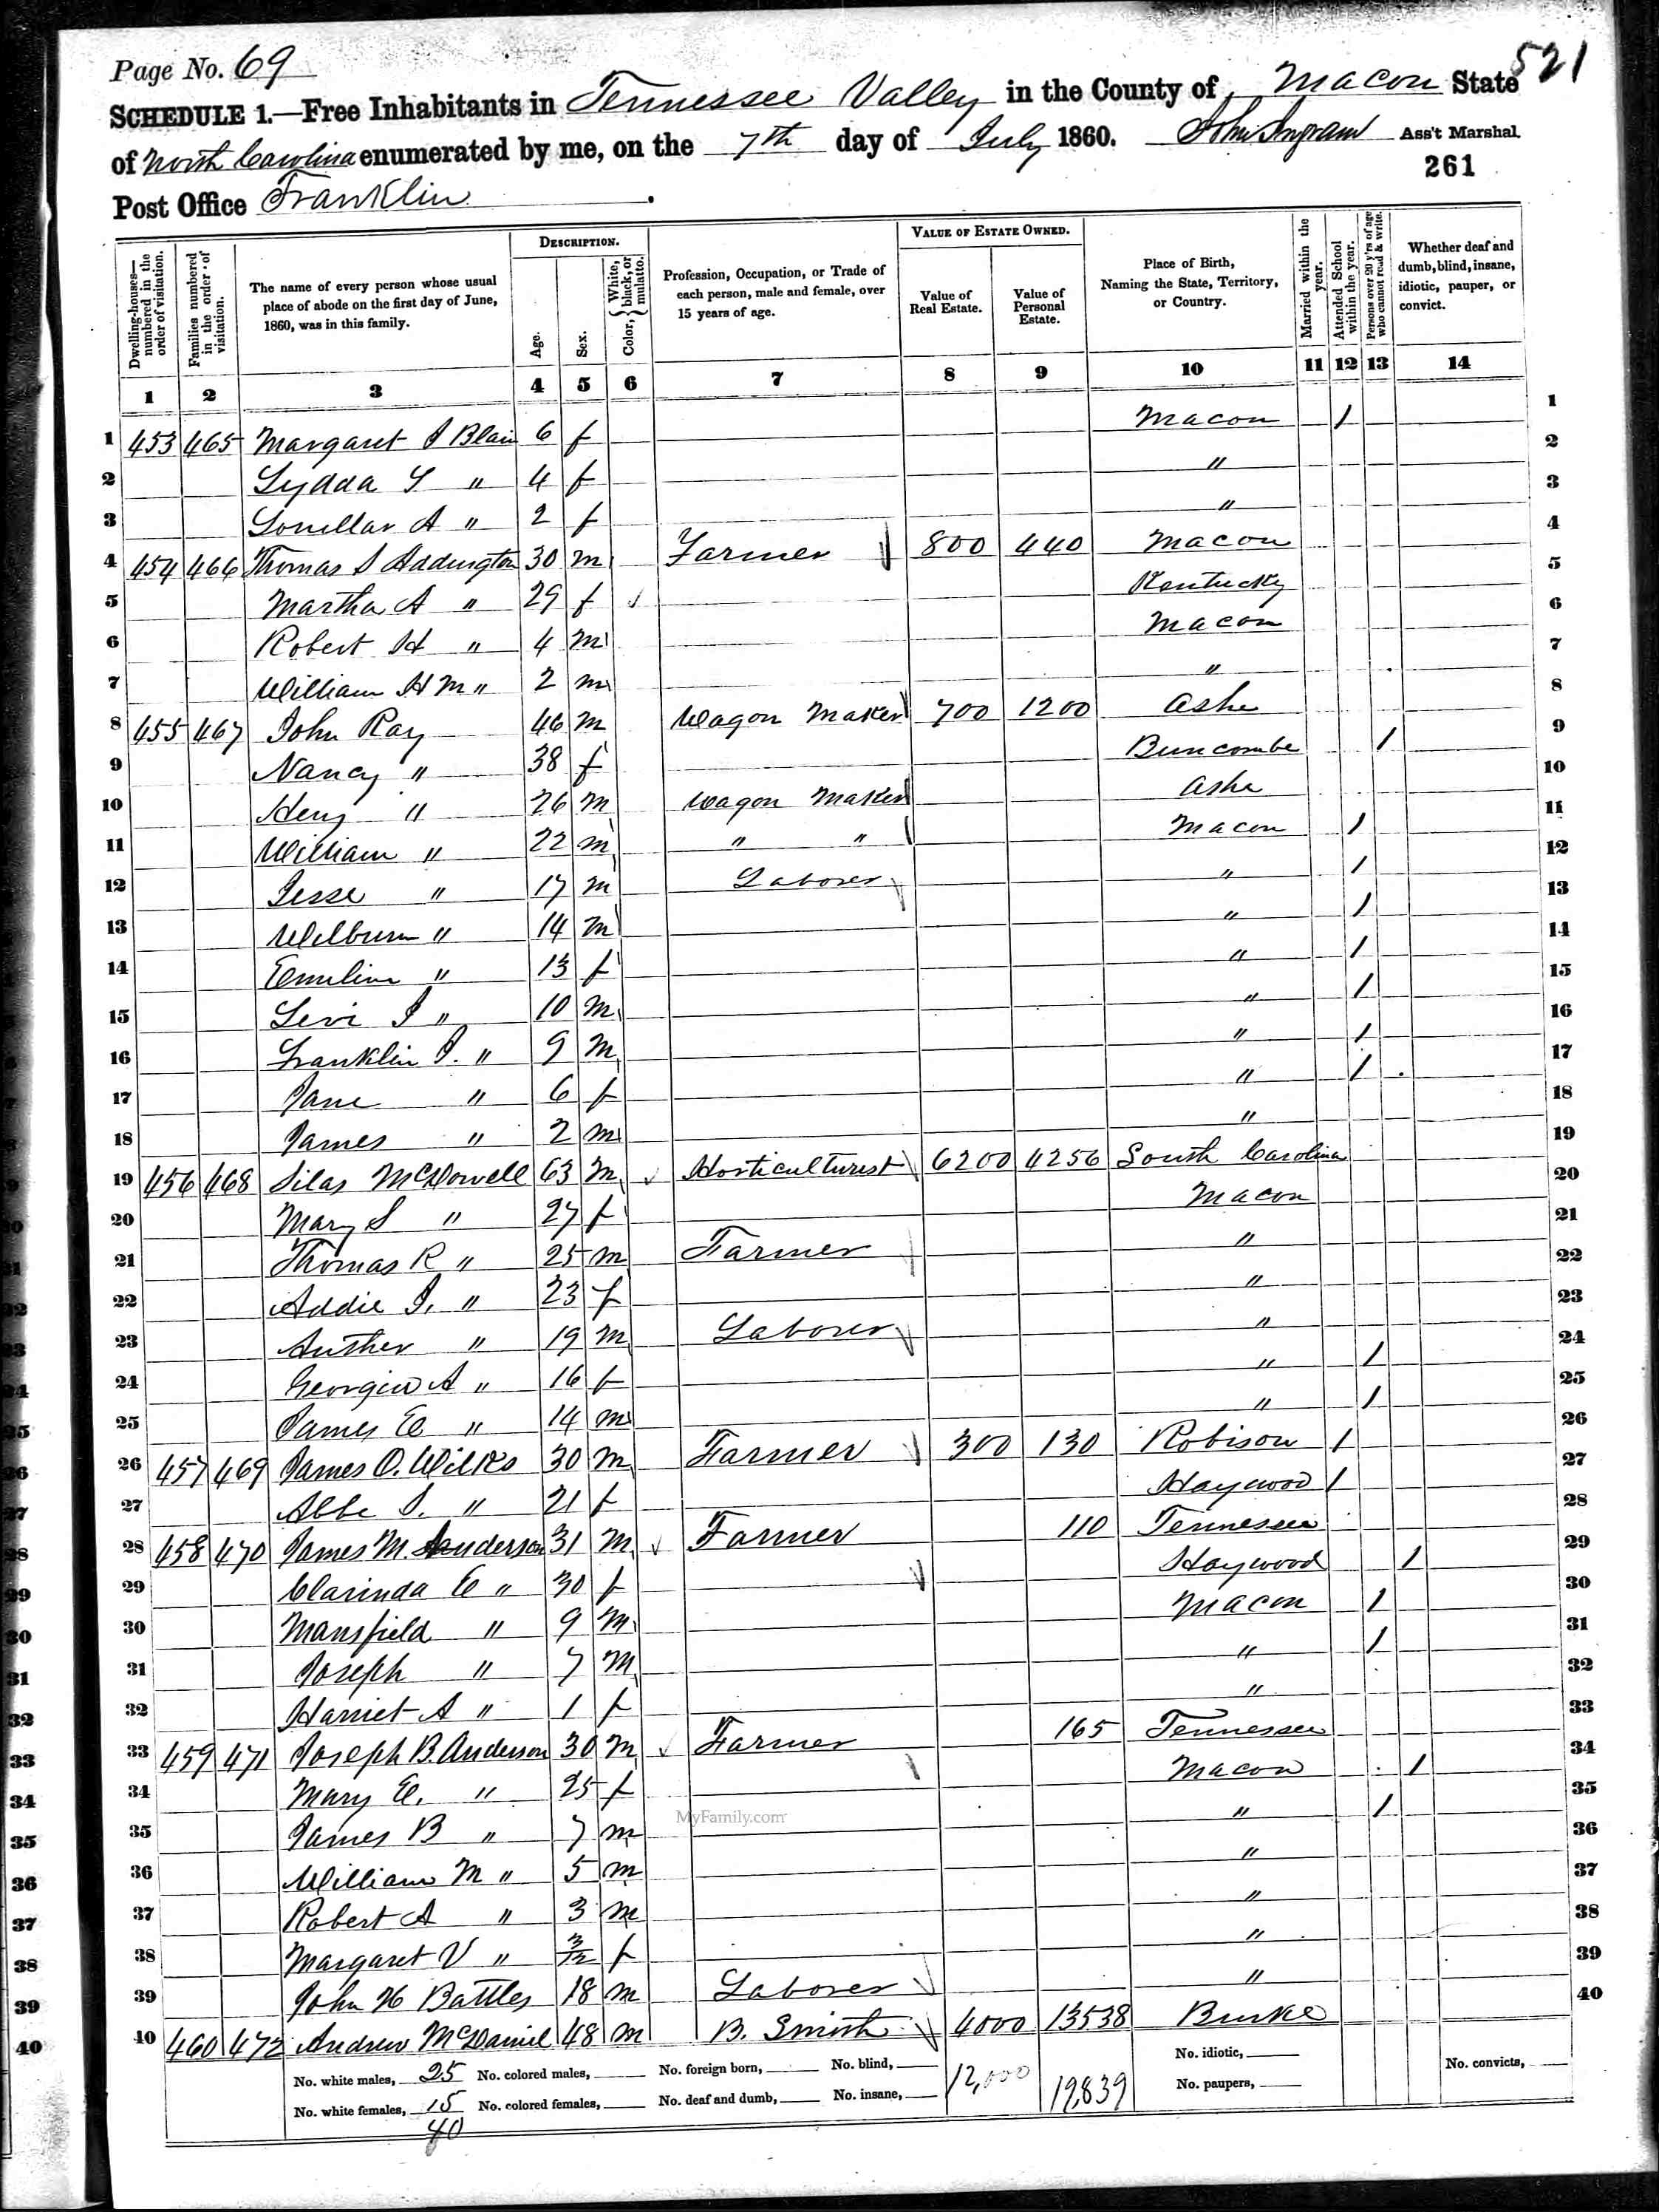 Page No. 69
521
SCHEDULE 1.—Free Inhabitants in Tennessee Valley in the County of Macon State
of North Carolina enumerated by me, on the 7th day of July 1860. John Ingram Ass't Marshal.
261
Post Office Franklin.
Dwelling-houses—numbered in the order of visitation.
Families numbered in the order of visitation.
The name of every person whose usual place of abode on the first day of June, 1860, was in this family.
DESCRIPTION.
Age.
Sex.
Color, { White, black, or mulatto.
Profession, Occupation, or Trade of each person, male and female, over 15 years of age.
VALUE OF ESTATE OWNED.
Value of Real Estate.
Value of Personal Estate.
Place of Birth, Naming the State, Territory, or Country.
Married within the year.
Attended School within the year.
Persons over 20 y'rs of age who cannot read & write.
Whether deaf and dumb, blind, insane, idiotic, pauper, or convict.
1 2 3 4 5 6 7 8 9 10 11 12 13 14
1 453 465 Margaret J Blair 6 f Macon / 1
2 Lydda Y " 4 f " 2
3 A " 2 f " 3
4 454 466 Thomas S Addington 30 m Farmer 800 440 Macon 4
5 Martha A " 29 f Kentucky 5
6 Robert H " 4 m Macon 6
7 William H M " 2 m " 7
8 455 467 John Ray 46 m Wagon Maker 700 1200 Ashe 8
9 Nancy " 38 f Buncombe / 9
10 Heny " 26 m Wagon Maker Ashe 10
11 William " 22 m " " Macon / 11
12 Jesse " 17 m Laborer " / 12
13 Wilburn " 14 m " / 13
14 Emeline " 13 f " / 14
15 Levi J " 10 m " / 15
16 Franklin J. " 9 m " / 16
17 Jane " 6 f " / 17
18 James " 2 m " 18
19 456 468 Silas McDowell 63 m Horticulturest 6200 4256 South Carolina 19
20 Mary S " 27 f Macon 20
21 Thomas R " 25 m Farmer " 21
22 Addie J. " 23 f " 22
23 Auther " 19 m Laborer " 23
24 Georgia A " 16 f " / 24
25 James E " 14 m " / 25
26 457 469 James O. Wilks 30 m Farmer 300 130 Robison / 26
27 Abbe S. " 21 f Haywood / 27
28 458 470 James M. Anderson 31 m Farmer 110 Tennessee 28
29 Clarinda E " 30 f Haywood / 29
30 Mansfield " 9 m Macon / 30
31 Joseph " 7 m " / 31
32 Harriet A " 1 f " 32
33 459 471 Joseph B. Anderson 30 m Farmer 165 Tennessee 33
34 Mary E. " 25 f Macon / 34
35 James B " 7 m " / 35
36 William M " 5 m " 36
37 Robert A " 3 m " 37
38 Margaret V " 3/12 f " 38
39 John H Battles 18 m Laborer " 39
40 460 472 Andrew McDaniel 48 m B. Smith 4000 13538 Burke 40
MyFamily.com
No. white males, 25 No. colored males, No. foreign born, No. blind, 12,000 19,839 No. idiotic, No. convicts,
No. white females, 15 No. colored females, No. deaf and dumb, No. insane, No. paupers,
40